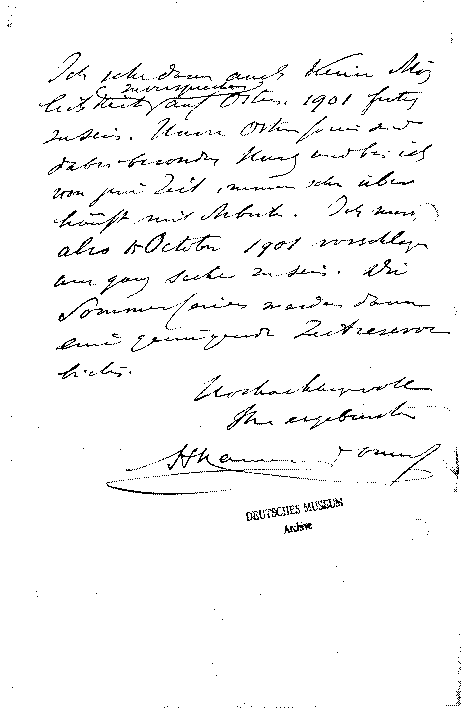 Ich sehe dann auch keine Mög
zu versprechen
lichkeit auf Ostern 1901 fertig
zu sein. Unsere Osterferien sind
dabei besonders kurz und bin ich
von jener Zeit immer sehr über
häuft mit Arbeit. Ich muss
also 1 October 1901 vorschlagen
um ganz sicher zu sein. Die
Sommerferien werden dann
eine genügende Zeitreserve
bieten.
Hochachtungsvoll
Ihr ergebenster
H Kamerlingh Onnes
DEUTSCHES MUSEUM
Archive